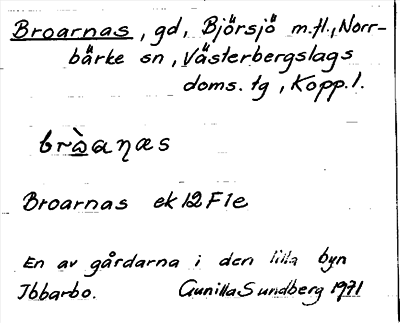 Broarnas, gd, Björsjö m.fl., Norr-
bärke sn, Västerbergslags
doms. tg, Kopp. l.
bròaṇæs
Broarnas ek 12 F 1e
En av gårdarna i den lilla byn
Ibbarbo. Gunilla Sundberg 1971